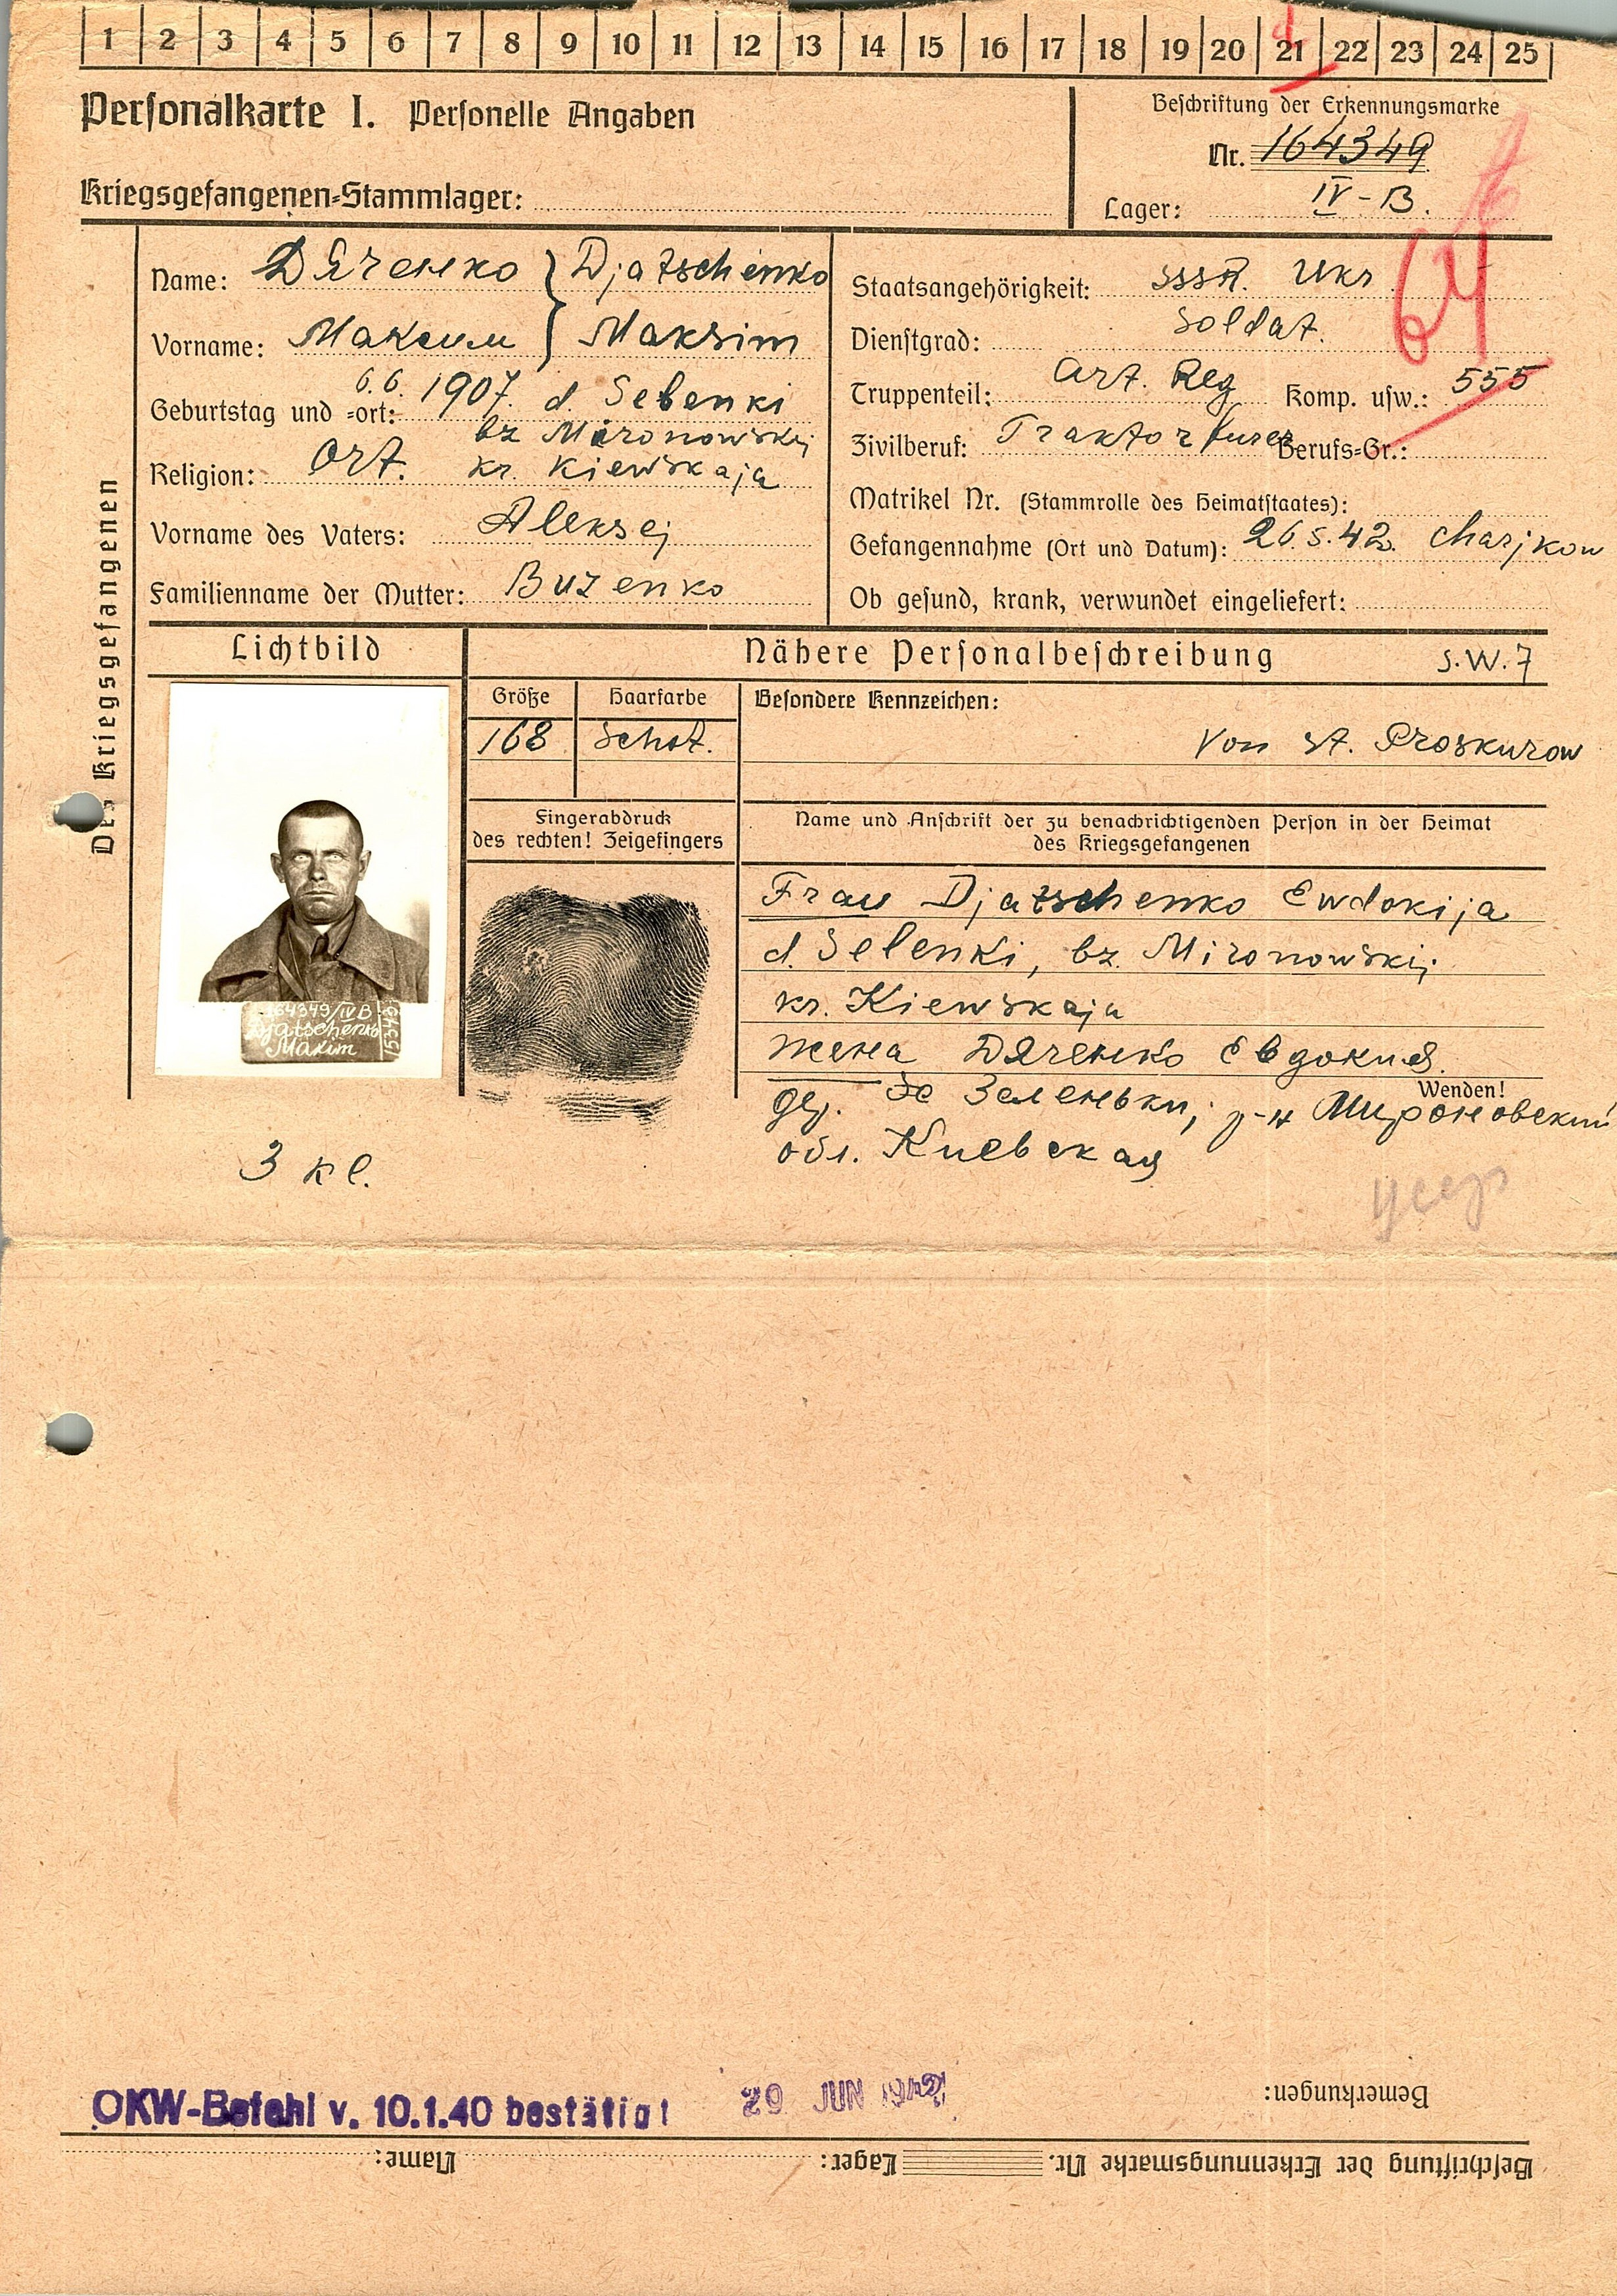 1 2 3 4 5 6 7 8 9 10 11 12 13 14 15 16 17 18 19 20 21 22 23 24 25
Personalkarte I. Personelle Angaben
Beschriftung der Erkennungsmarke
Nr. 164349
Kriegsgefangenen-Stammlager:
Lager: IV-B.
Des Kriegsgefangenen
Name: Дяченко } Djatschenko
Vorname: Максим } Maksim
Geburtstag und -ort: 6.6. 1907. d. Selenki
bz Mironowskij
Religion: Ort. kr. Kiewskaja
Vorname des Vaters: Aleksej
Familienname der Mutter: Buzenko
Staatsangehörigkeit: SSSR. Ukr
Dienstgrad: Soldat.
Truppenteil: Art. Reg Komp. usw.: 555
Zivilberuf: Traktorfurer Berufs-Gr.:
Matrikel Nr. (Stammrolle des Heimatstaates):
Gefangennahme (Ort und Datum): 26.5.42. Charjkow
Ob gesund, krank, verwundet eingeliefert:
64
Lichtbild
Nähere Personalbeschreibung S.W.7
Größe Haarfarbe Besondere Kennzeichen:
168 Schat. Von St. Proskurow
Fingerabdruck
des rechten! Zeigefingers
Name und Anschrift der zu benachrichtigenden Person in der Heimat
des Kriegsgefangenen
Frau Djatschenko Ewdokija
d. Selenki, bz. Mironowskij
kr. Kiewskaja
жена Дяченко Евдокия.
Wenden!
дер. Зеленьки, р-н Мироновский
обл. Киевская
164349/IV B
Djatschenko
Maxim
3 кл.
OKW-Befehl v. 10.1.40 bestätigt
29 JUN
Bemerkungen:
Beschriftung der Erkennungsmarke Nr. Lager: Name: